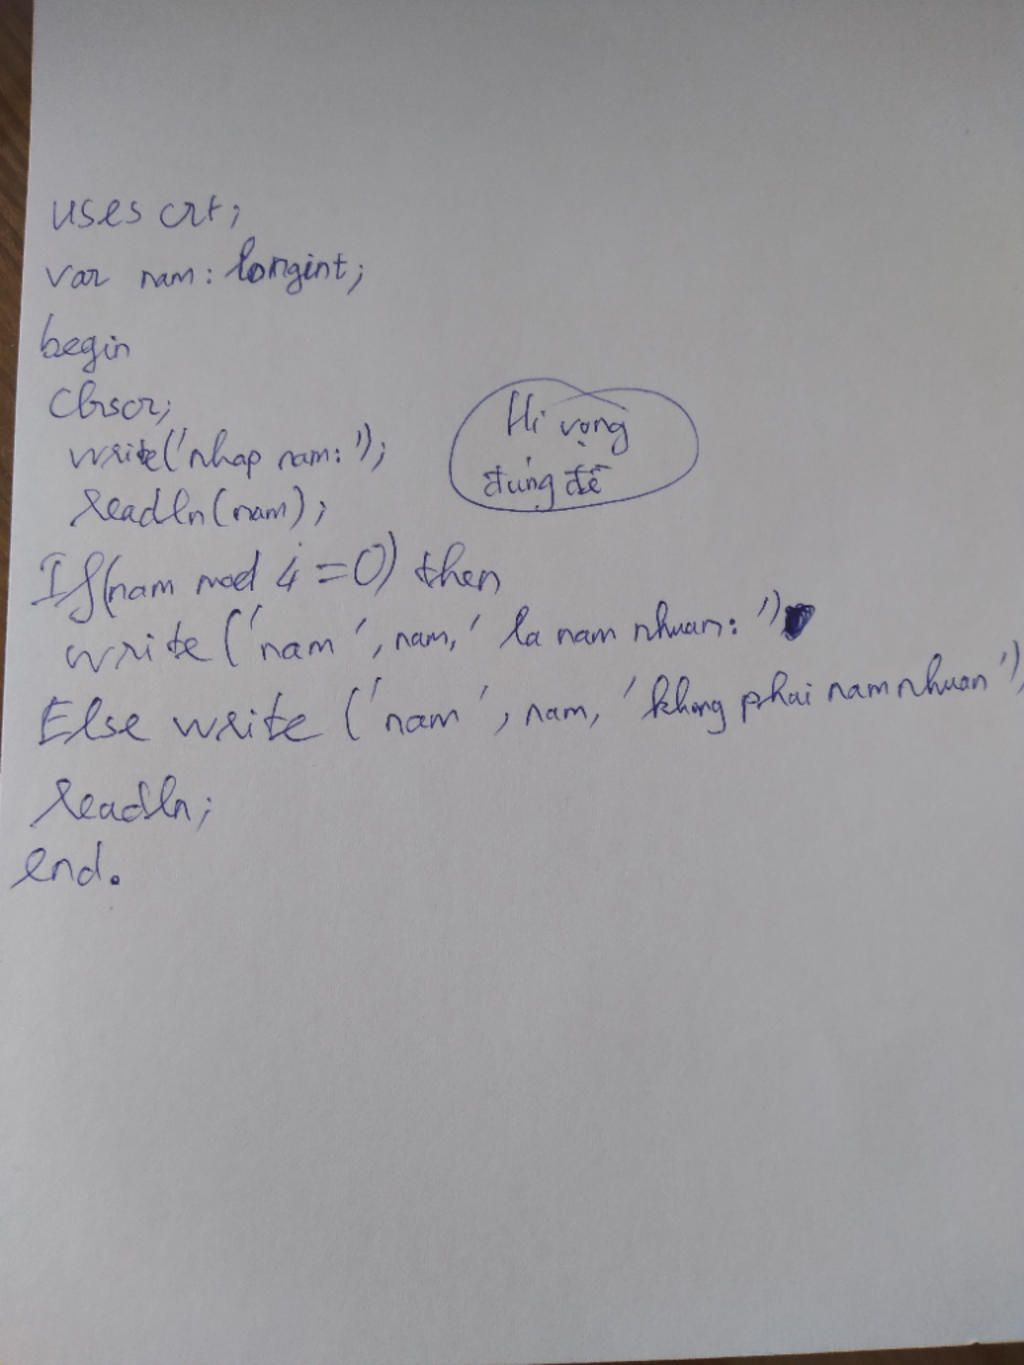 uses crt;
var nam: longint;
begin
Clrscr;
write('nhap nam: ');
readln(nam);
If(nam mod 4 =0) then
write ('nam ', nam, ' la nam nhuan: ')
Else write ('nam ', nam, 'khong phai nam nhuan');
readln;
end.
Hi vọng
đúng đề